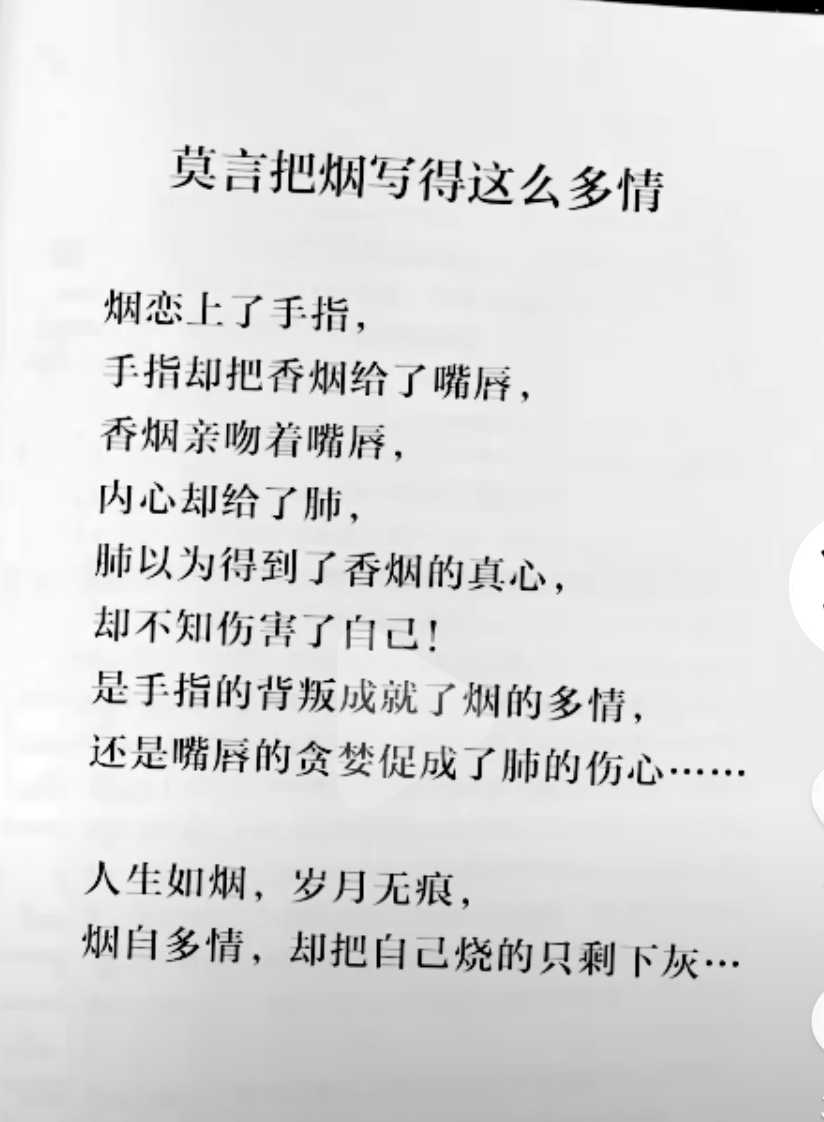 莫言把烟写得这么多情
烟恋上了手指，
手指却把香烟给了嘴唇，
香烟亲吻着嘴唇，
内心却给了肺，
肺以为得到了香烟的真心，
却不知伤害了自己！
是手指的背叛成就了烟的多情，
还是嘴唇的贪婪促成了肺的伤心……
人生如烟，岁月无痕，
烟自多情，却把自己烧的只剩下灰…